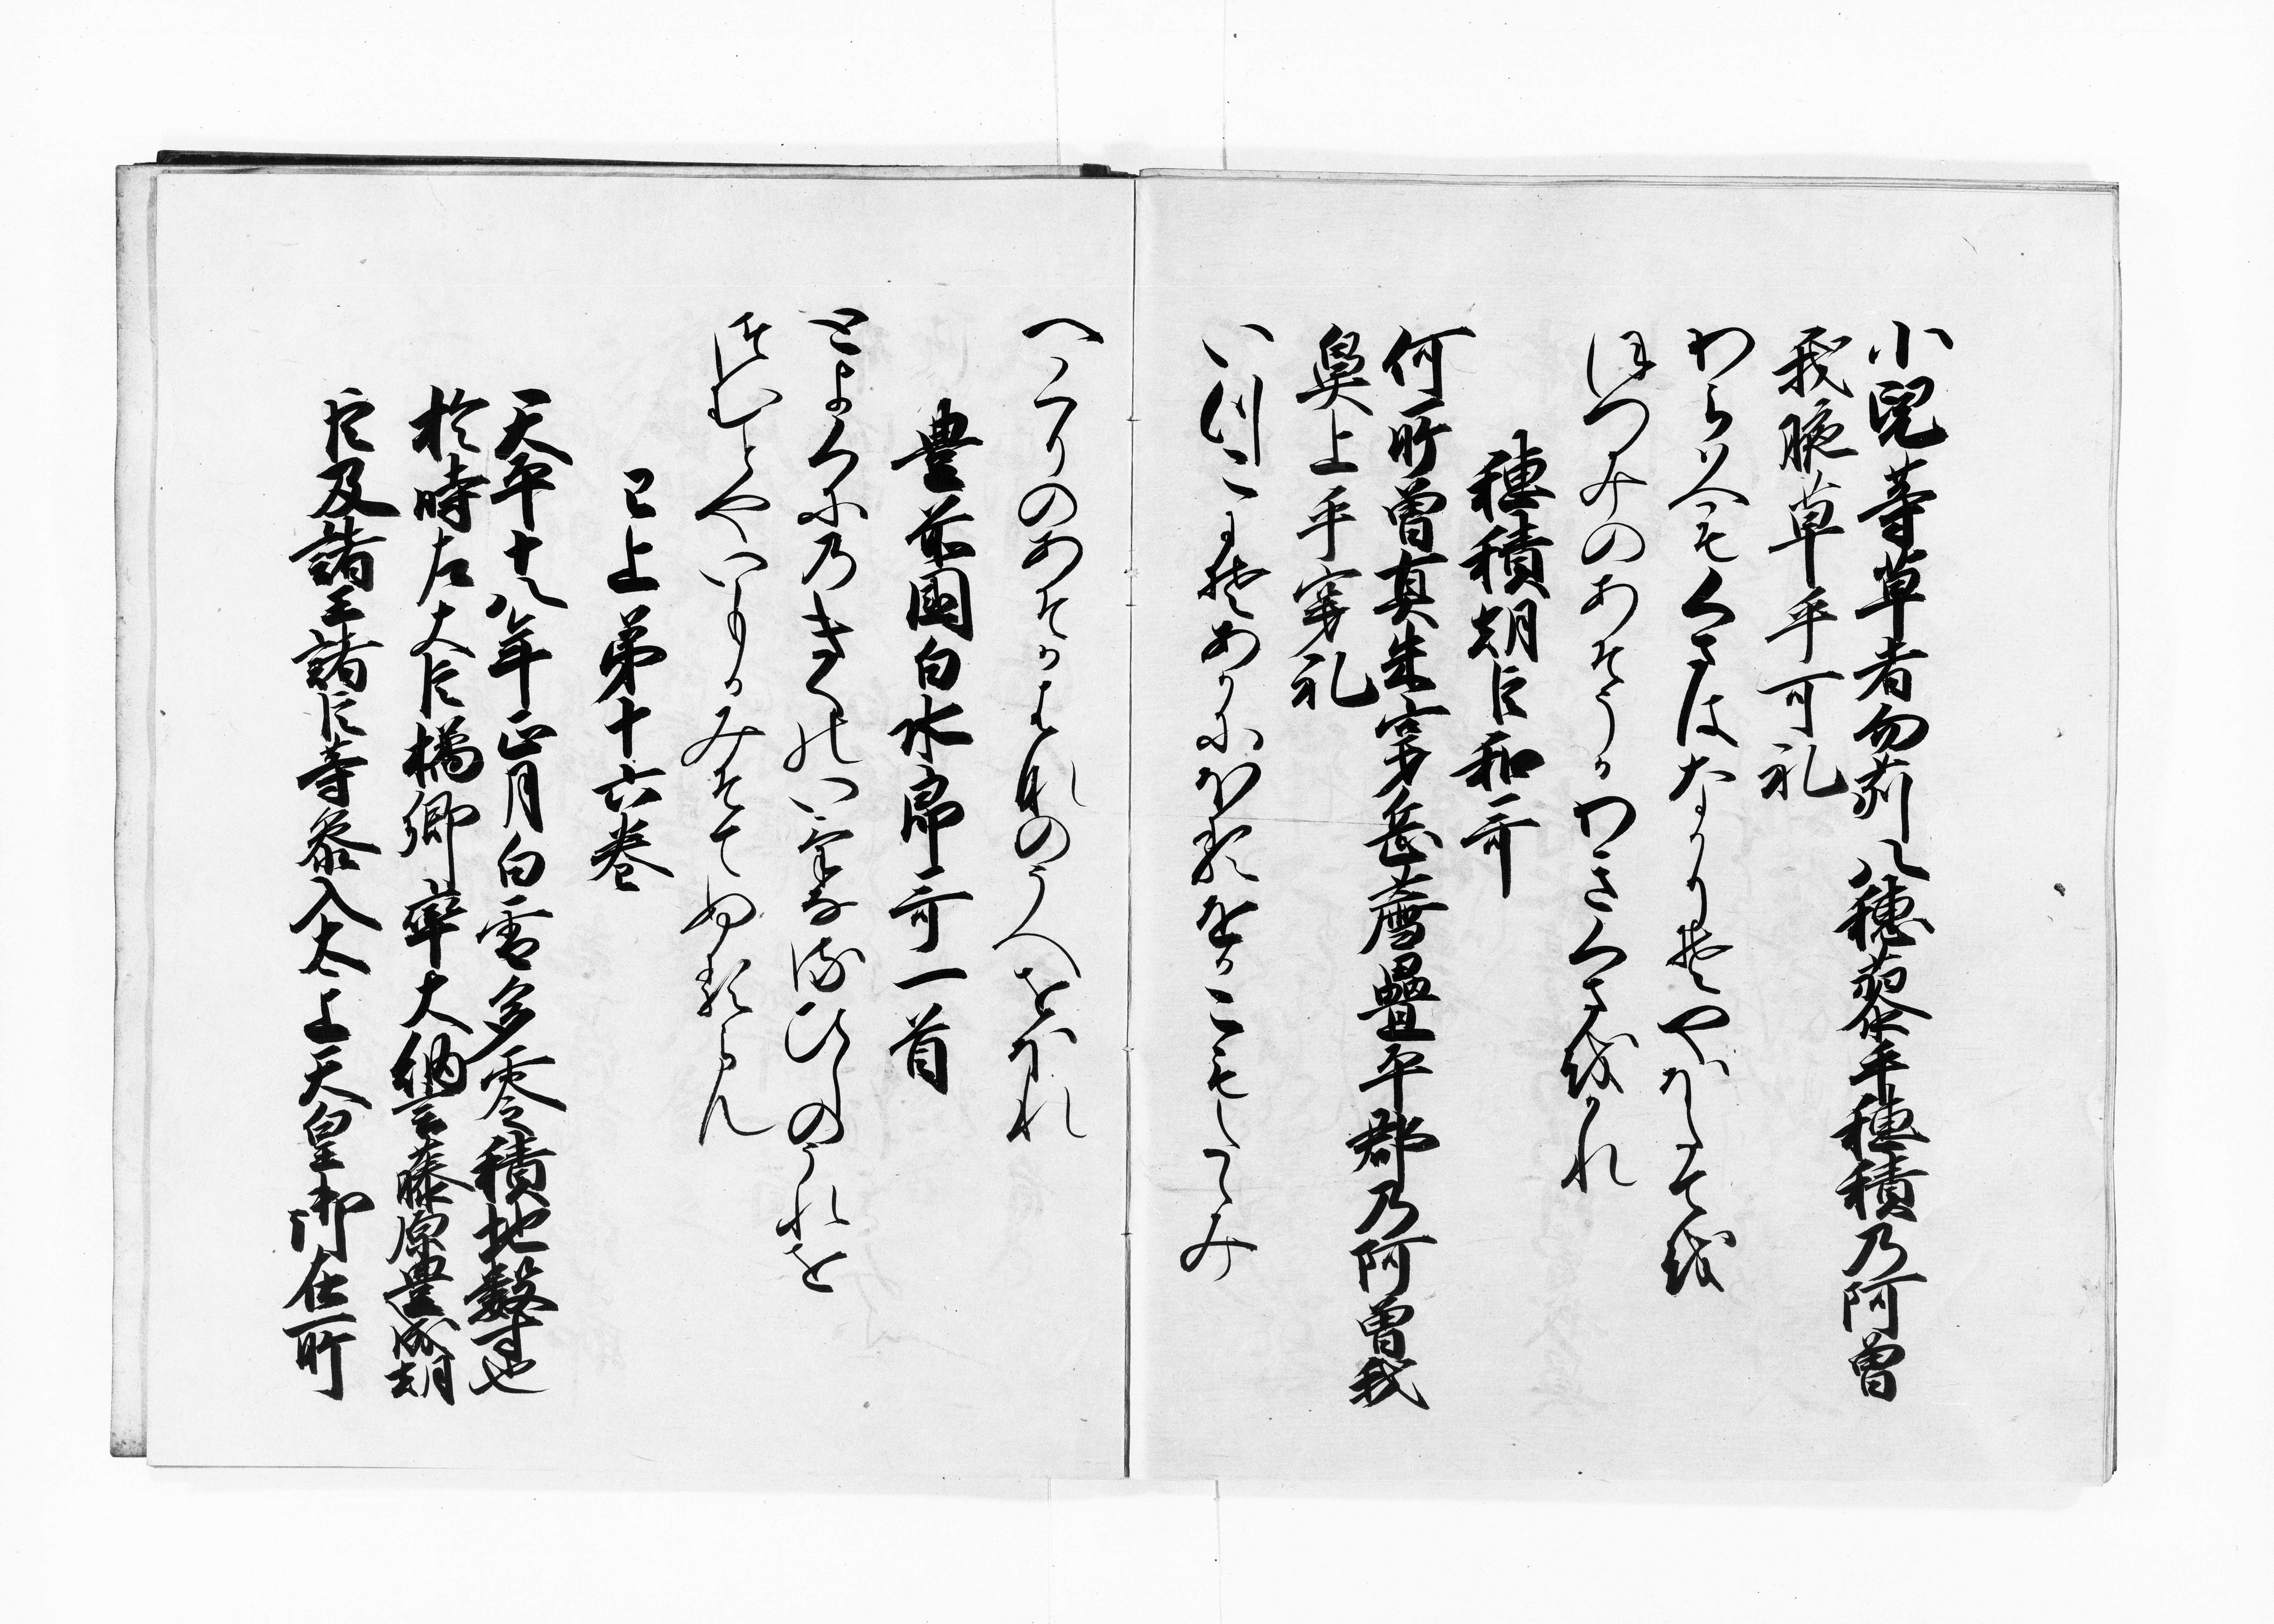 小兒等草者勿苅八穂蓼乎穂積乃阿曽
我腋草乎可礼
わらはへもくさはなかりそやほたて越
ほつみのあそうかわきくさ越かれ
穂積朝臣和哥
何所曽真朱穿岳薦疊平郡乃阿曽我
鼻上乎穿礼
いつこにそあかにほるをかこもたゝみ
へくりのあそかはなのうへをほれ
豊前國白水郎哥一首
とよくに乃きくのいけなるひしのうれを
つむとやいもかみそてぬるらん
已上第十六巻
天平十八年正月白雪多零積地數寸也
於時左大臣橘卿率大納言藤原豊成朝
臣及諸王諸臣等参入太上天皇御在所